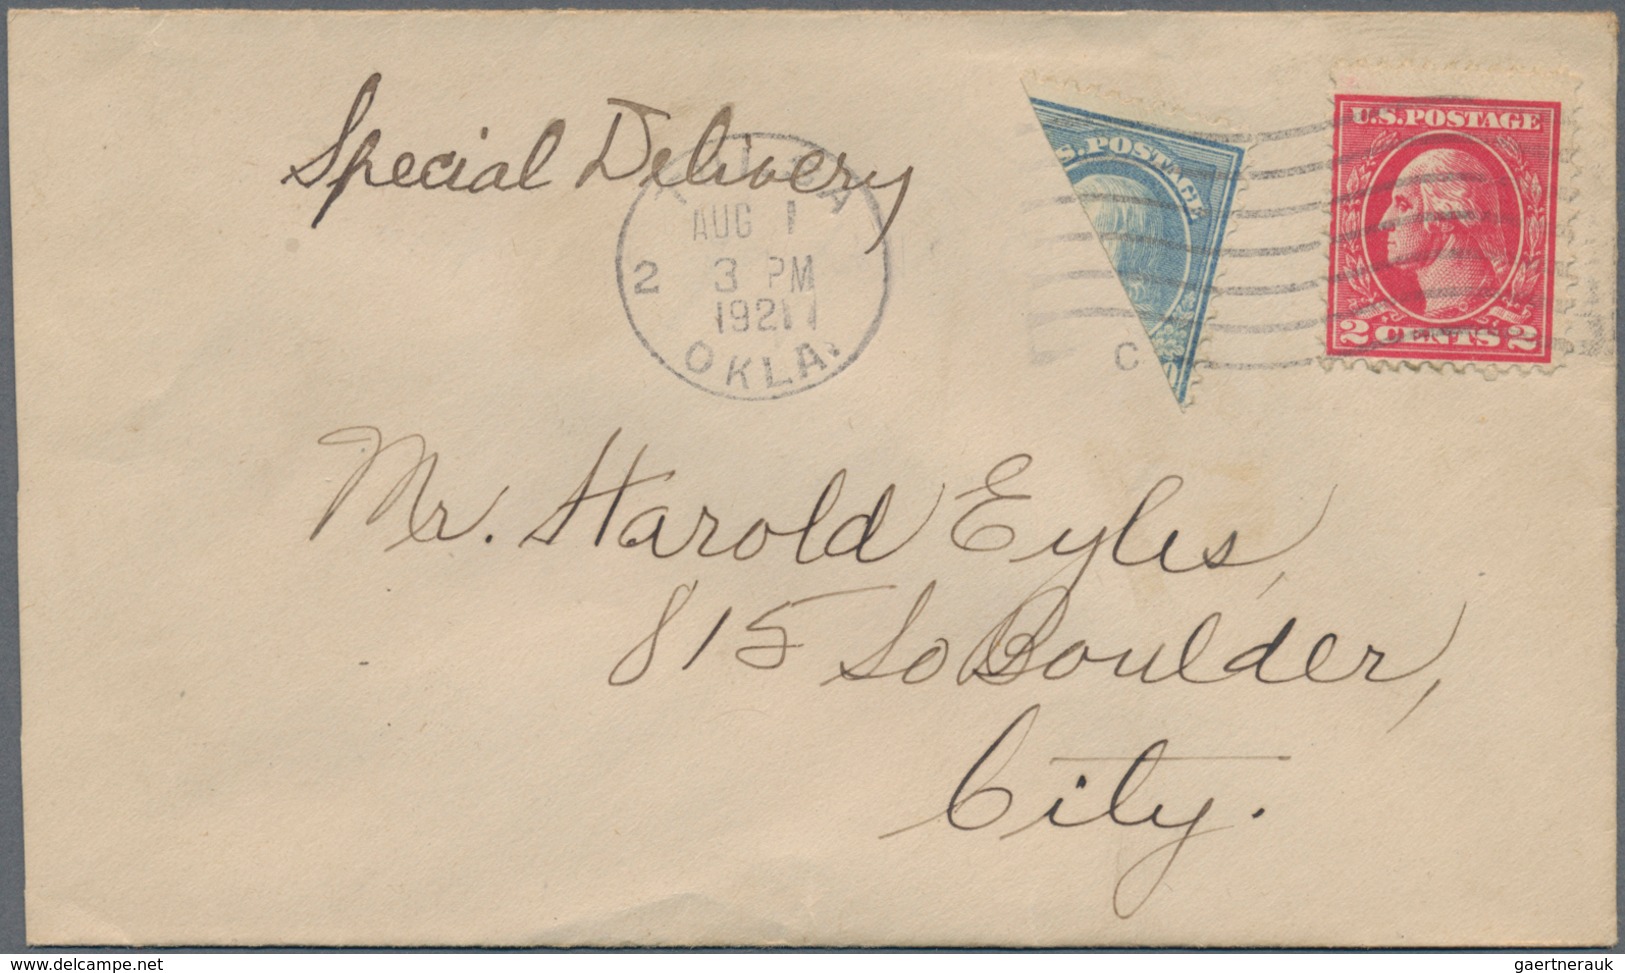 Special Delivery
TULSA
AUG 1
2 3 PM
1921
OKLA.
S. POSTAGE
0
C
U.S. POSTAGE
2 CENTS 2
Mr. Harold Eyles,
815 So Boulder,
City.
www.delcampe.net
gaertnerauk